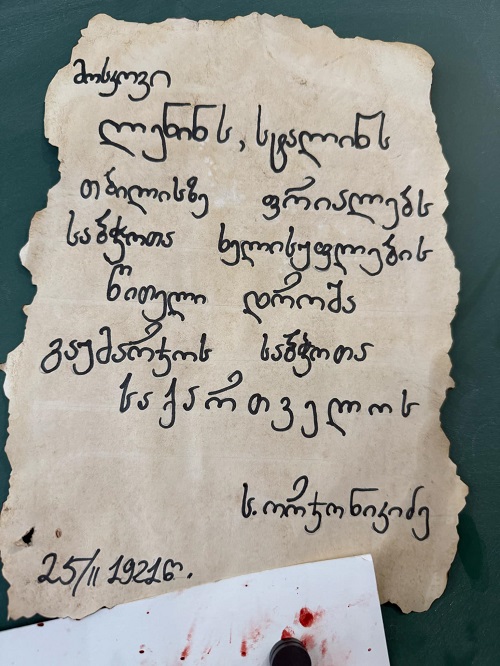 მოსკოვი
ლენინს, სტალინს
თბილისზე ფრიალებს
საბჭოთა ხელისუფლების
წითელი დროშა
გაუმარჯოს საბჭოთა
საქართველოს
ს. ორჯონიკიძე
25/II 1921წ.